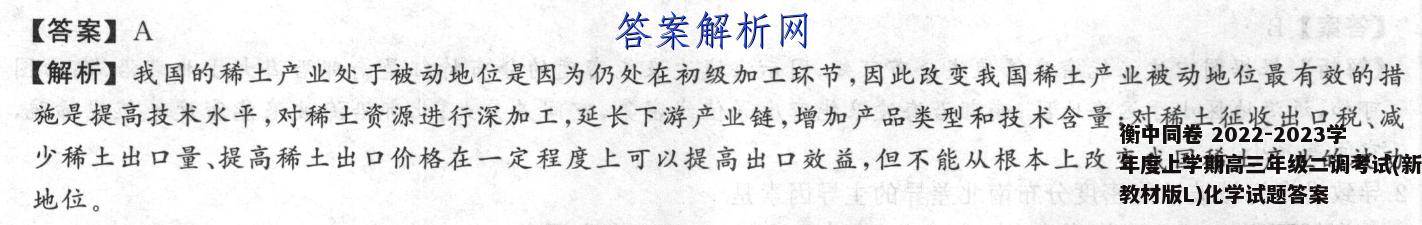 答案解析网
【答案】A
【解析】我国的稀土产业处于被动地位是因为仍处在初级加工环节,因此改变我国稀土产业被动地位最有效的措
施是提高技术水平,对稀土资源进行深加工,延长下游产业链,增加产品类型和技术含量;对稀土征收出口税、减
少稀土出口量、提高稀土出口价格在一定程度上可以提高出口效益,但不能从根本上改变
地位。
衡中同卷 2022-2023学
年度上学期高三年级二调考试(新
教材版L)化学试题答案